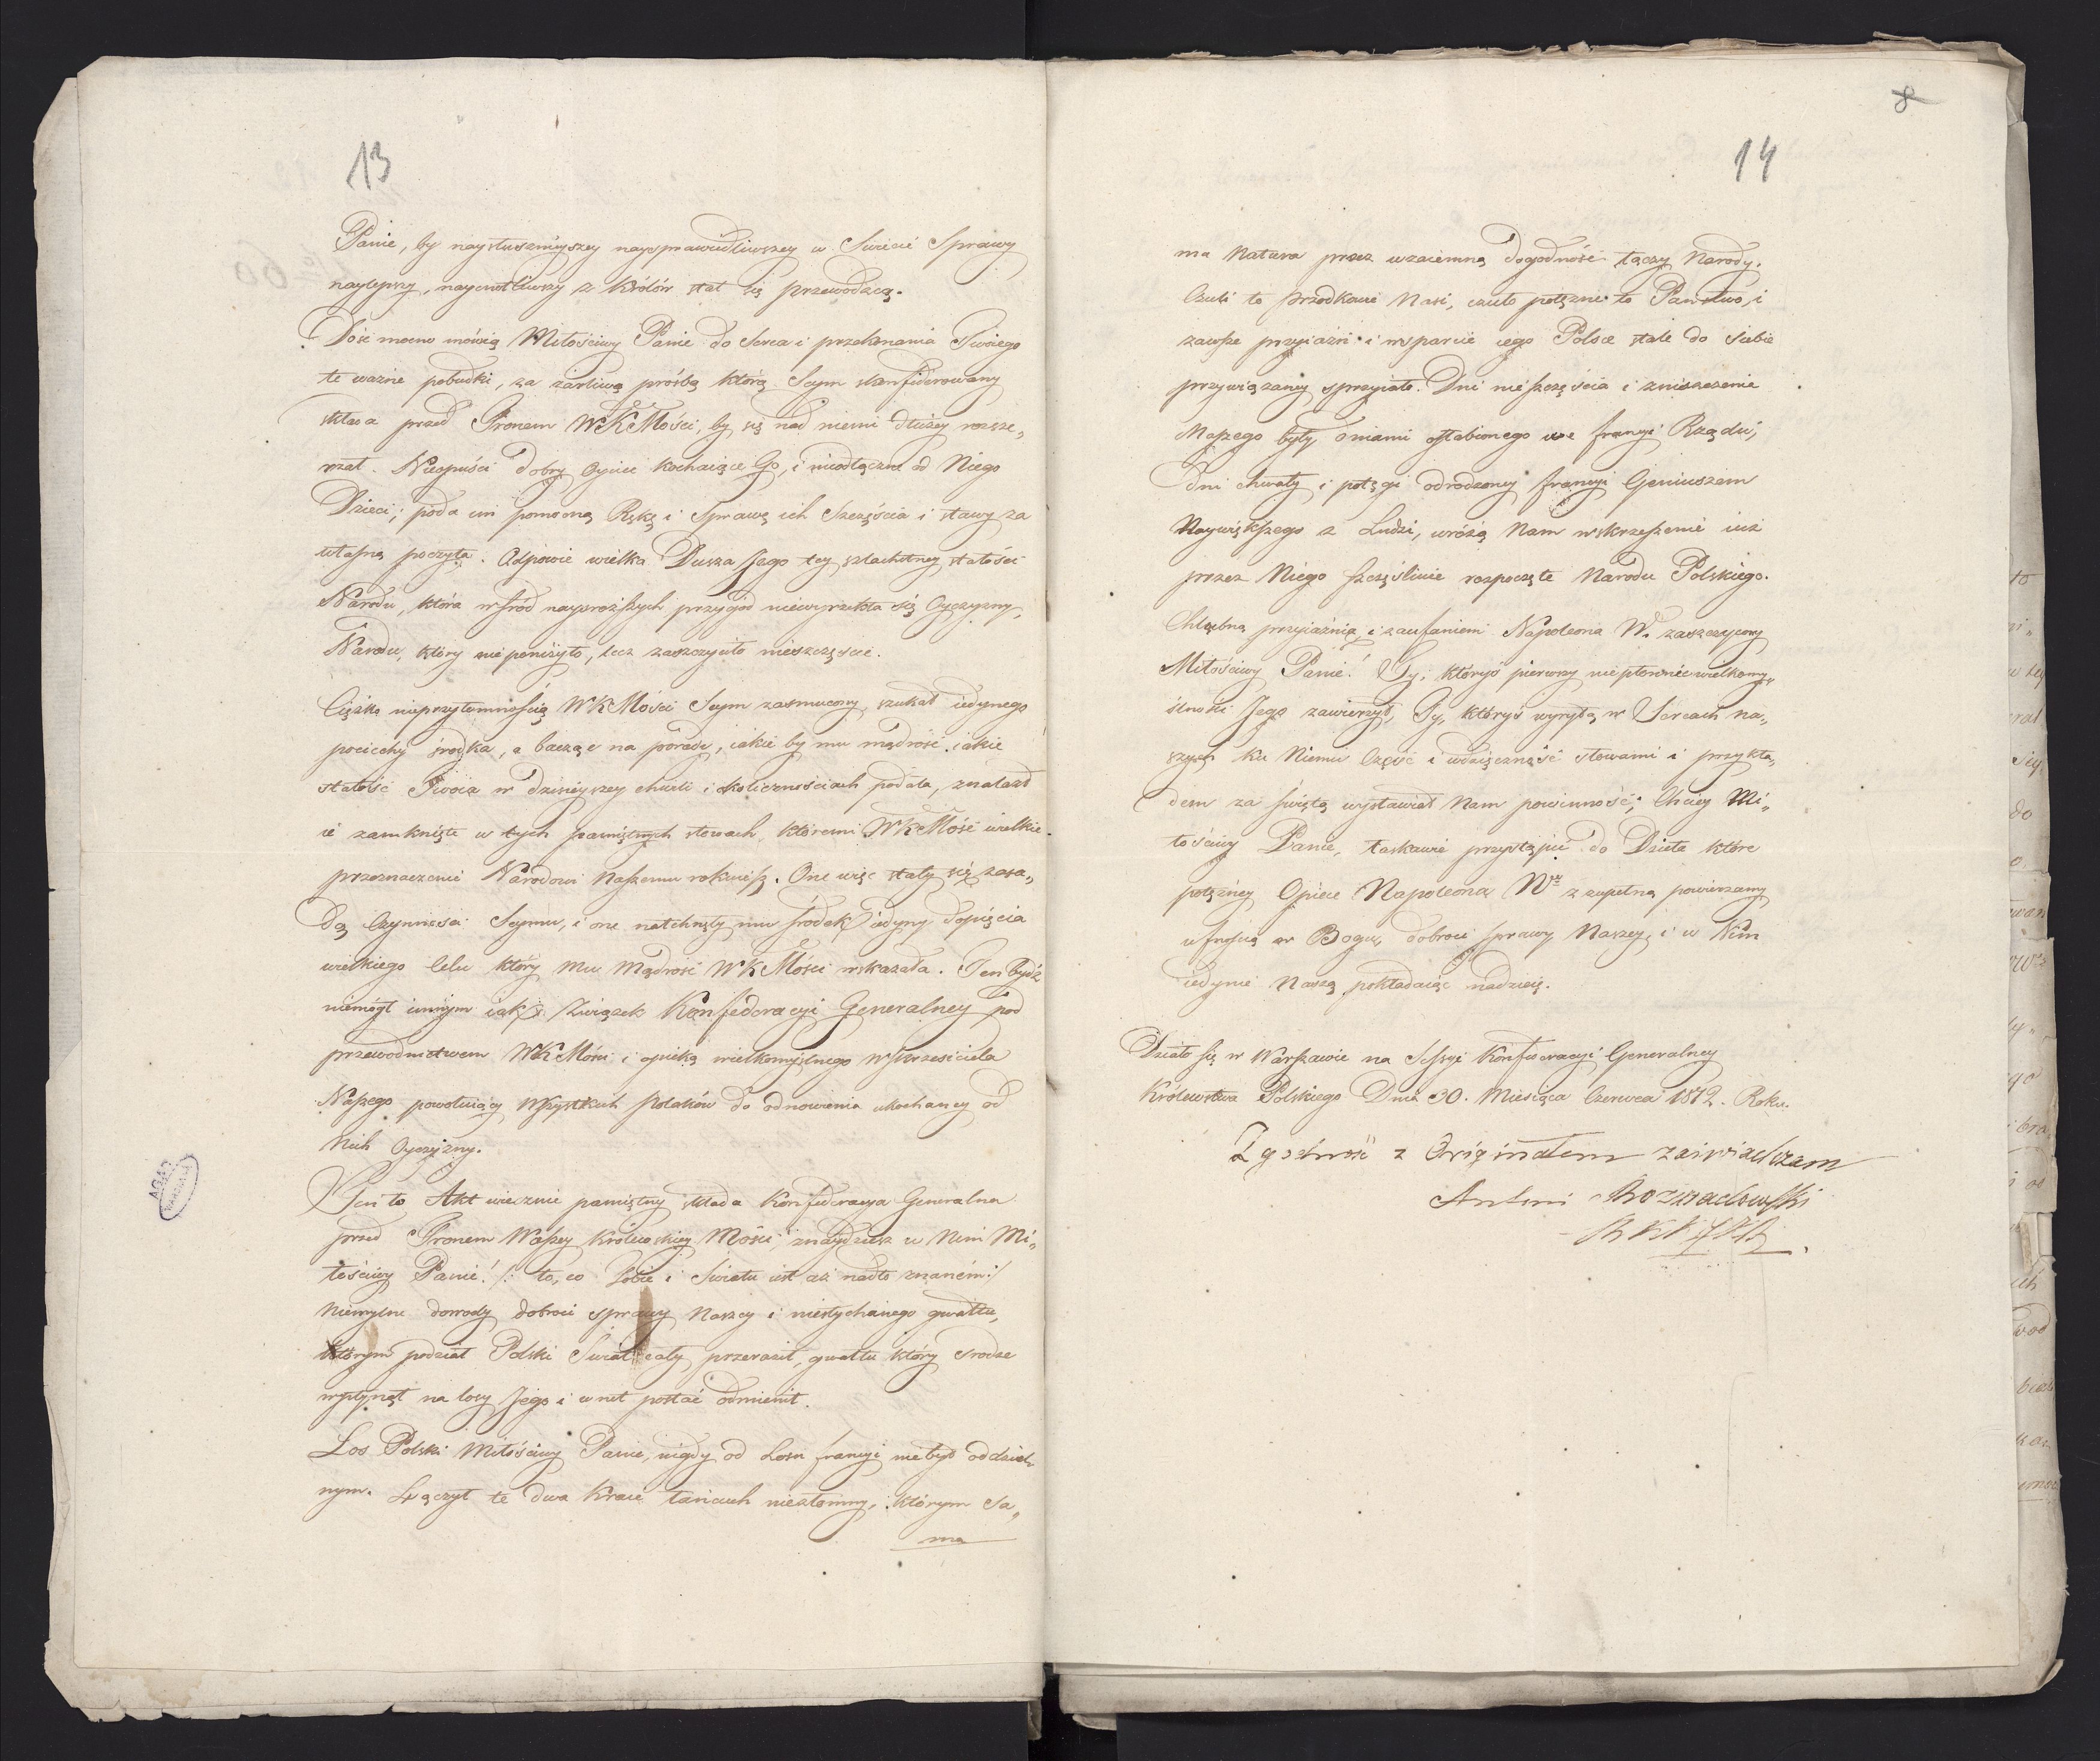 13
Panie, by naysłusznieyszey nayspráwiedliwszey w Świecie Sprawy
naylepszy, naycnotliwszy z Królów stał się przewodzcą.
Dość mocno mówią Miłościwy Panie do Serca i przekonania Twoiego
te ważne pobudki, za żarliwą prośbą którą Seym skonfederowany
składa przed Tronem WKMości, by się nad niemi dłużey rozsze„
rzał. Nieopuści dobry Oyciec kochaiące Go, i nieodłączne od Niego
Dzieci; poda im pomocną Rękę i Sprawę ich Szczęścia i sławy za
własną poczyta. Odpowie wielka Dusza Jego tey szlachetney stałości
Narodu, która wśród naysroższych przygód niewyrzekła się Oyczyzny,
Narodu, który nie poniżyło, lecz zaszczyciło nieszczęście.
Ciężko nieprzytomnością WKMości Seym zasmucony, szukał iedynego
pociechy środka, a bacząc na poradę, iakie by mu mądrość, iakie
stałość Twoia w dzisieyszey chwili i okolicznościach podała, znalazł
ie zamknięte w tych pamiętnych słowach, któremi WKMość wielkie
przeznaczenie Narodowi Naszemu rokuiesz. One więc stały się zasa„
dą Czynności Seymu, i one natchnęły mu środek iedyny dopięcia
wielkiego Celu który mu Mądrość WKMości wskazała. Ten bydź
niemógł innym iak Związek Konfederacyi Generalney pod
przewodnictwem WKMości i opieką wielkomyślnego Wskrzesiciela
Naszego powołuiący Wszystkich Polaków do odnowienia ukochaney od
Nich Oyczyzny.
Ten to Akt wiecznie pamiętny składa Konfederacya Generalna
przed Tronem Waszey Królewskiey Mości, znaydziesz w Nim Mi„
łościwy Panie! /: to, co Tobie i Światu iest aż nadto znaném:/
Niemylne dowody dobroci sprawy Naszey i niesłychanego gwałtu,
którym podział Polski Świat cały przeraził, gwałtu który srodze
wpłynął na losy Jego i wnet postać odmienił.
Los Polski Miłościwy Panie, nigdy od Losu francyi niebył oddziel„
nym. Łączył te dwa Kraie łańcuch niezłomny, którym Sa„
ma
8
14
ma Natura przez wzaiemną dogodność łączy Narody.
Czuli to Przodkowie Nasi, czuło potężne to Państwo, i
zawsze przyiaźń i wsparcie iego Polsce stale do Siebie
przywiązaney sprzyiało. Dni nieszczęścia i zniszczenia
Naszego były dniami osłabionego we francyi Rządu,
dni chwały i potęgi odrodzoney francyi Geniuszem
Naywiększego z Ludzi, wróżą Nam wskrzeszenie iuż
przez Niego szczęśliwie rozpoczęte Narodu Polskiego.
Chlubną przyiaźnią i zaufaniem Napoleona W. zaszczycony
Miłościwy Panie! Ty, któryś pierwszy niepłonnie wielkomy„
ślności Jego zawierzył, Ty, któryś wyrytą w Sercach na„
szych ku Niemu Cześć i wdzięczność słowami i przykła„
dem za świętą wystawiał Nam powinność; Chciey Mi„
łościwy Panie, łaskawie przystąpić do Dzieła które
potężney Opiece Napoleona Wgo z zupełną powierzamy
ufnością w Bogu, dobroci sprawy Naszey, i w Nim
iedynie Naszą pokładaiąc nadzieię.
Działo się w Warszawie na Sessyi Konfederacyi Generalney
Królewstwa Polskiego Dnia 30. Miesiąca Czerwca 1812. Roku.
Zgodność z Originałem zaświadczam
Antoni Rozwadowski